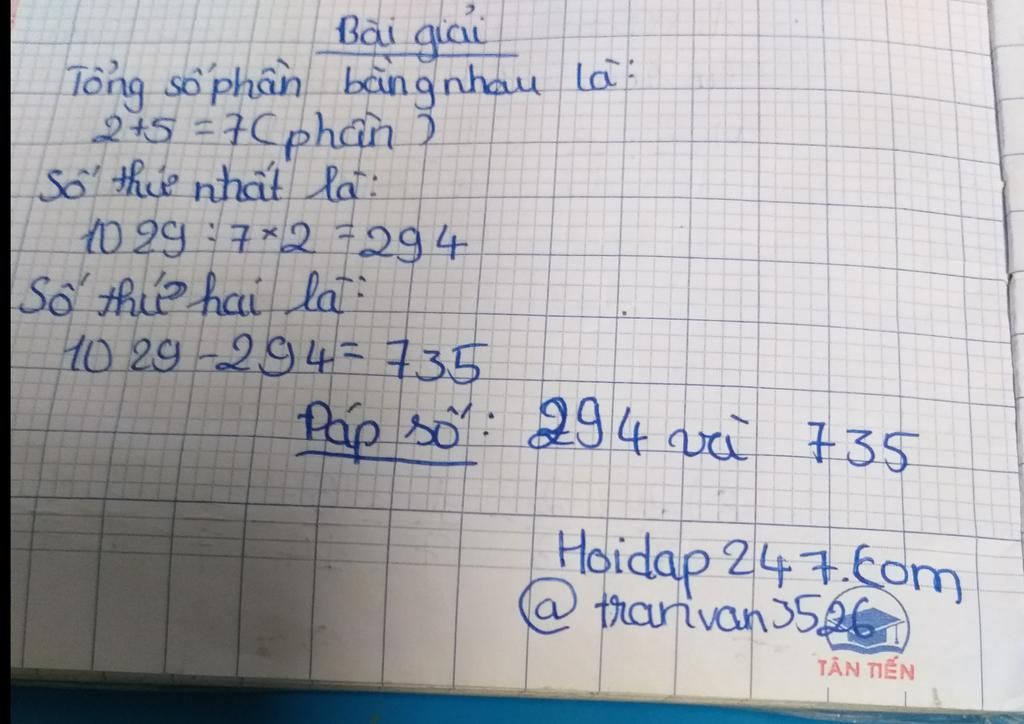 Bài giải
Tổng số phần bằng nhau là:
2+5 = 7 ( phần )
Số thứ nhất là:
1029 : 7 × 2 = 294
Số thứ hai là:
1029 - 294 = 735
Đáp số: 294 và 735
Hoidap247.com
@tranvan3526
TÂN TIẾN